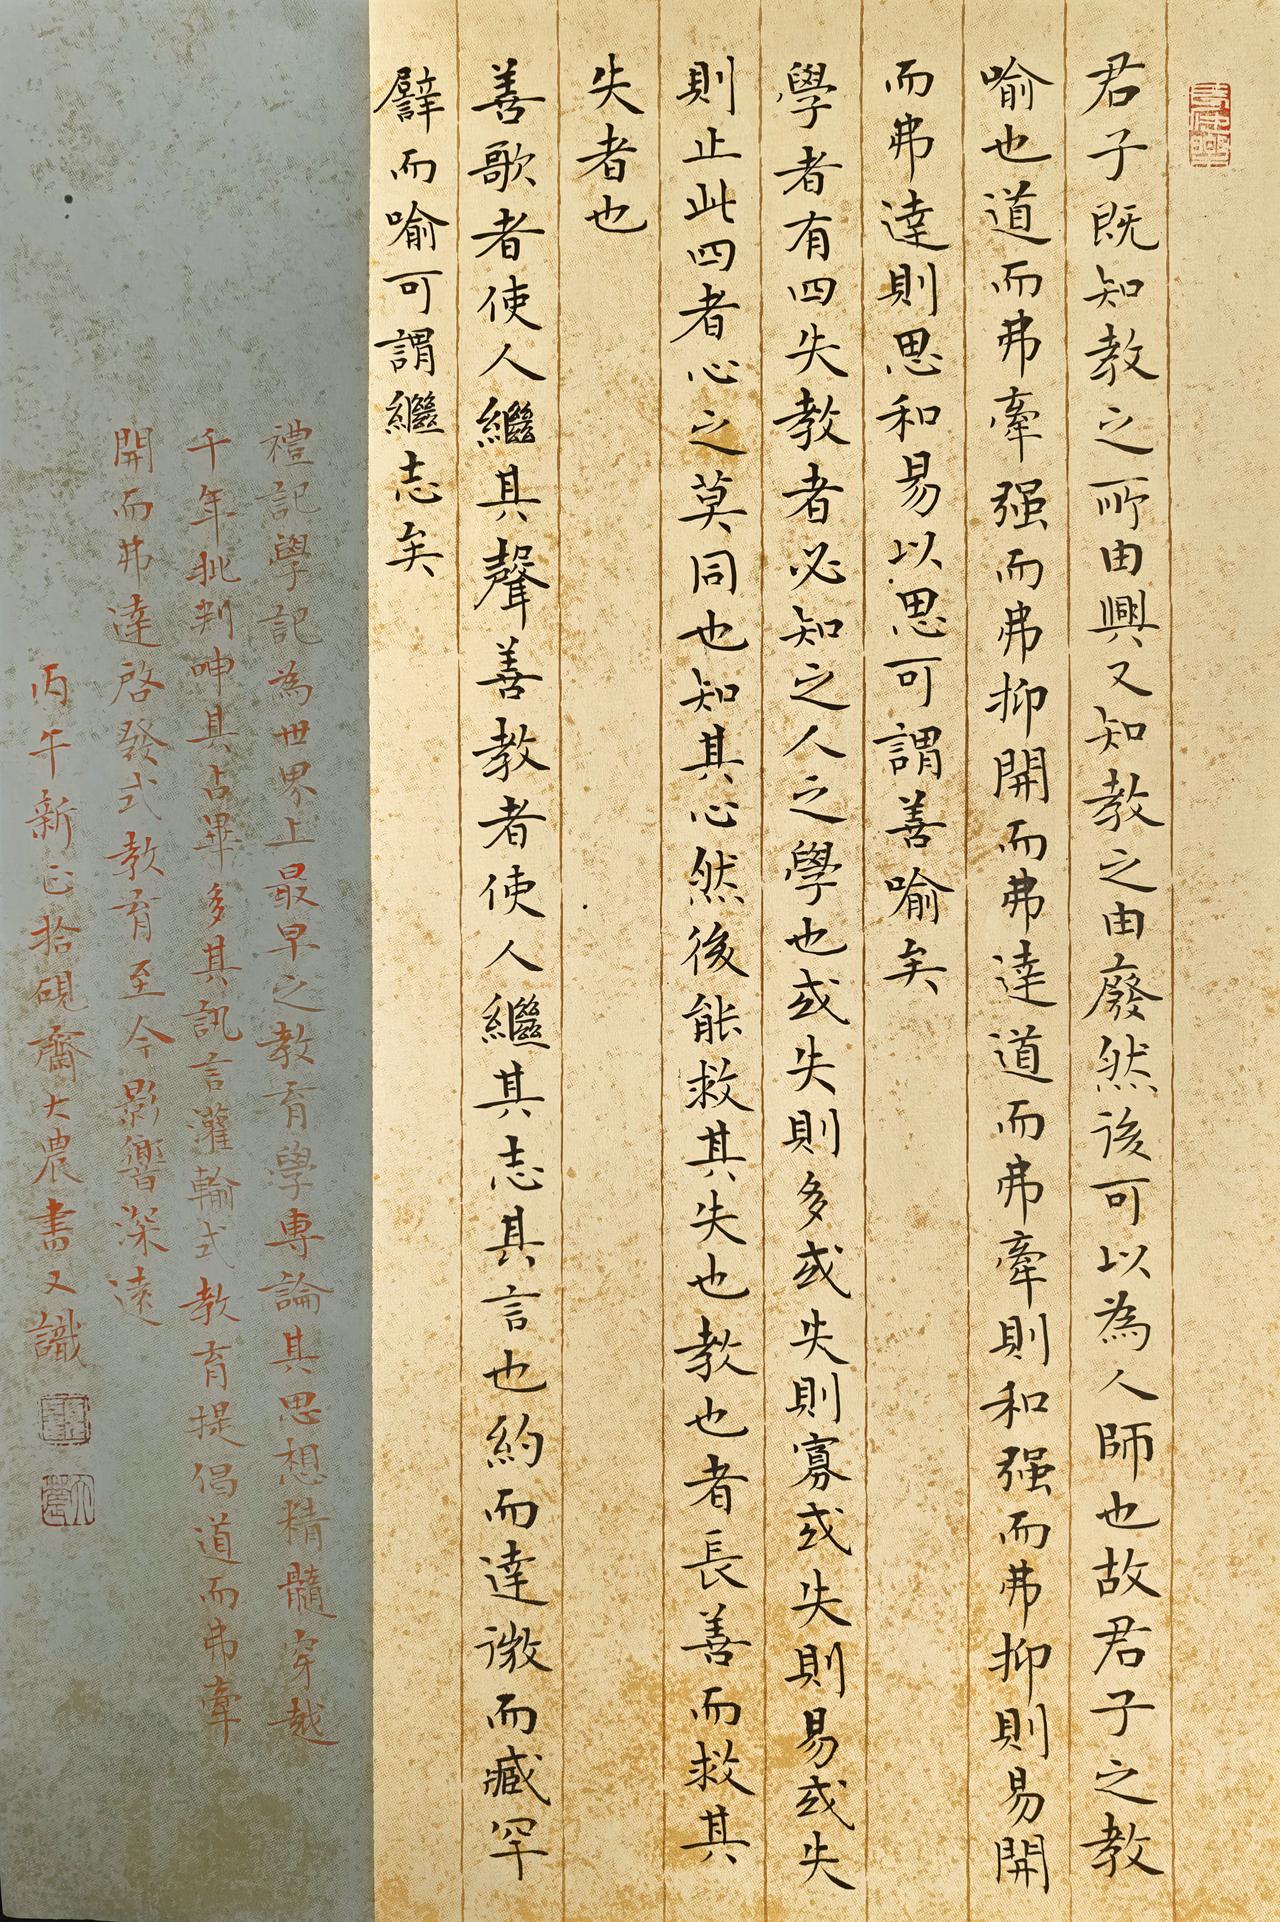 君子既知教之所由興又知教之由廢然後可以為人師也故君子之教
喻也道而弗牽强而弗抑開而弗達道而弗牽則和强而弗抑則易開
而弗達則思和易以思可謂善喻矣
學者有四失教者必知之人之學也或失則多或失則寡或失則易或失
則止此四者心之莫同也知其心然後能救其失也教也者長善而救其
失者也
善歌者使人繼其聲善教者使人繼其志其言也約而達微而臧罕
譬而喻可謂繼志矣
禮記學記為世界上最早之教育學專論其思想精髓穿越
千年批判呻其占畢多其訊言灌輸式教育提倡道而弗牽
開而弗達啓發式教育至今影響深遠
丙午新正拾硯齋大農書又識